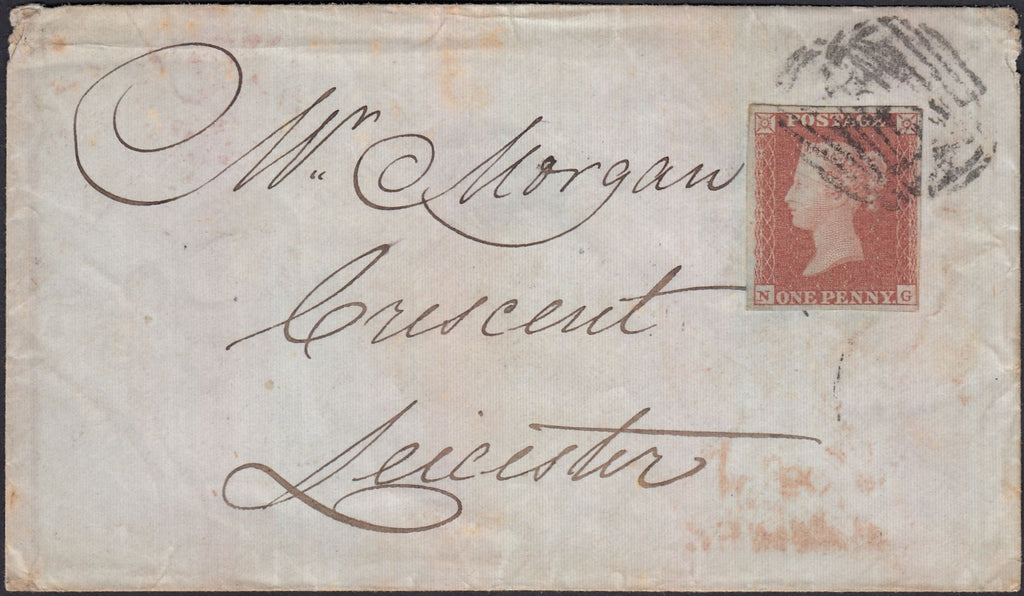 POSTAGE
Mr. Morgan
N ONE PENNY G
Crescent
Leicester